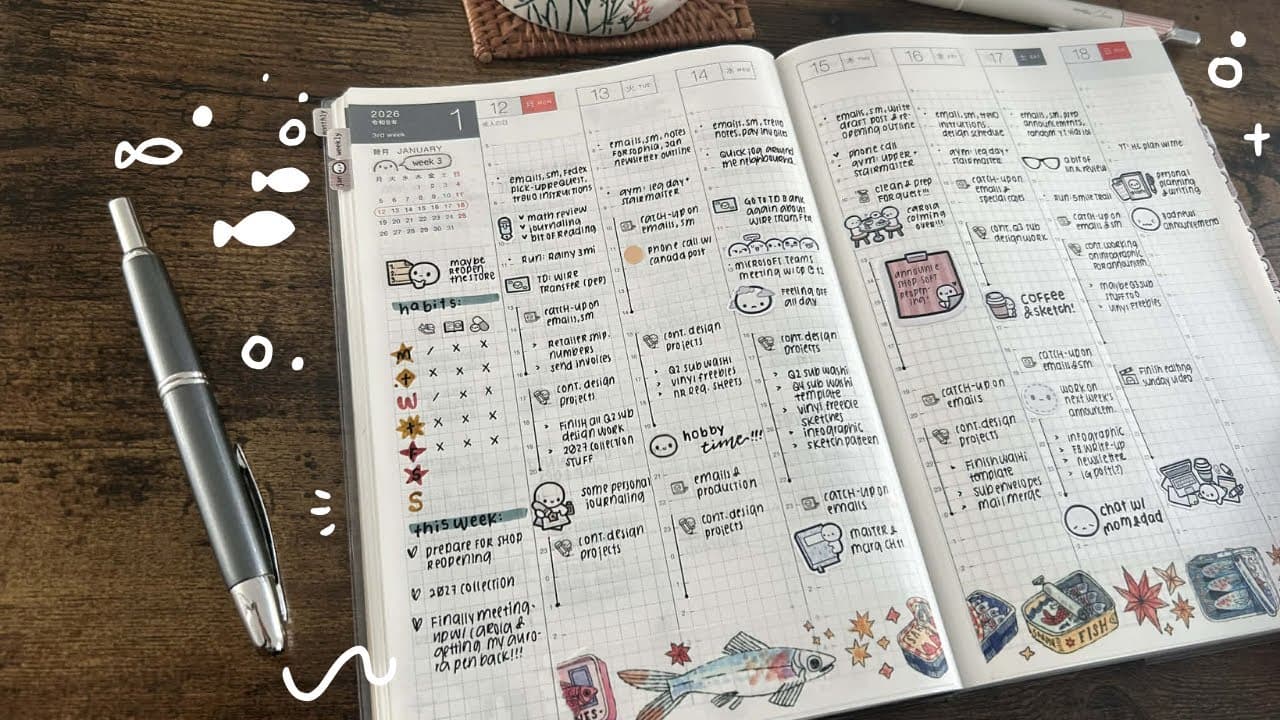 2026
令和8年
3rd week
1
monthly
weekly
jan
睦月 JANUARY
week 3
月 火 水 木 金 土 日
1 2 3 4
5 6 7 8 9 10 11
12 13 14 15 16 17 18
19 20 21 22 23 24 25
26 27 28 29 30 31
maybe
reopen
the store
habits:
M / x x
T x x x
W / x x
T x x x
F x x x
S
S
this week:
prepare for shop
reopening
2027 collection
Finally meeting
up w/ carola &
getting my auro-
ra pen back!!!
12 月 MON
成人の日
emails, sm, fedex
pick-up request,
trello instructions
math review
journaling
bit of reading
Run: Rainy 3mi
TD: wire
transfer (dep)
catch-up on
emails, sm
Retailer ship.
numbers
send invoices
cont. design
projects
Finish all Q2 sub
design work
2027 collection
stuff
some personal
journaling
cont. design
projects
13 火 TUE
emails, sm, notes
for sophia, Jan
newsletter outline
gym: leg day +
stairmaster
catch-up on
emails, sm
phone call w/
canada post
cont. design
projects
Q2 sub washi
vinyl freebies
NR req. sheets
hobby
time-!!!
emails &
production
cont. design
projects
14 水 WED
emails, sm, trello
notes, pay invoices
Quick jog around
the neighbourhood
Go to TD Bank
again about
wire transfer
Microsoft Teams
meeting w/
Feeling off
all day
cont. design
projects
Q2 sub washi
Q4 sub washi
template
vinyl freebie
sketches
infographic
sketch pattern
catch-up on
emails
master &
marg CH.11
15 木 THU
emails, sm, write
draft post & re-
opening outline
phone call
gym: upper +
stairmaster
clean & prep
for guest!!!
carola
coming
over!!!
announce
shop soft
reopen-
ing!
catch-up on
emails
cont. design
projects
Finish washi
template
sub envelopes
mail merge
16 金 FRI
emails, sm, trello
instructions,
design schedule
gym: leg day +
stairmaster
catch-up on
emails &
special cards
cont. Q3 sub
design work
coffee
& sketch!
catch-up on
emails & sm
work on
next week's
announcem.
infographic
FB write-up
newsletter
IG post(s)
chat w/
mom & dad
17 土 SAT
emails, sm, prep
announcements,
random YT videos
a bit of
review
Run: 5mi treadmill
catch-up on
emails & sm
cont. working
on infographic
for announcem.
maybe Q3 sub
stuff too
vinyl freebies
Finish editing
sunday video
18 日 SUN
YT: HL plan w/ me
personal
planning
& writing
sad news
announcement
FISH